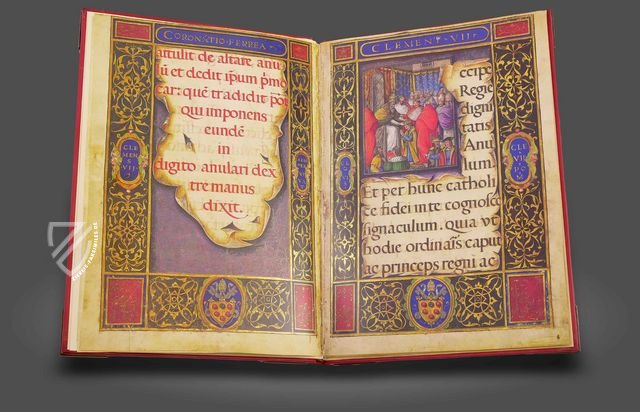 CORONATIO FERREA
attulit de altare anu
lū et dedit ip̄um pmo
car: quē tradidit pōt
qui imponens
eundē
in
digito anulari dex
tre manus
dixit.
CLE
MEN
S
VII
CLEMENT VII
ccipe
Regie
digni
tatis
Anu
lum
Et per hunc catholi
ce fidei inte cognosce
signaculum. quia vt
hodie ordinaris caput
ac princeps regni ac
CLE
VII
PO
M